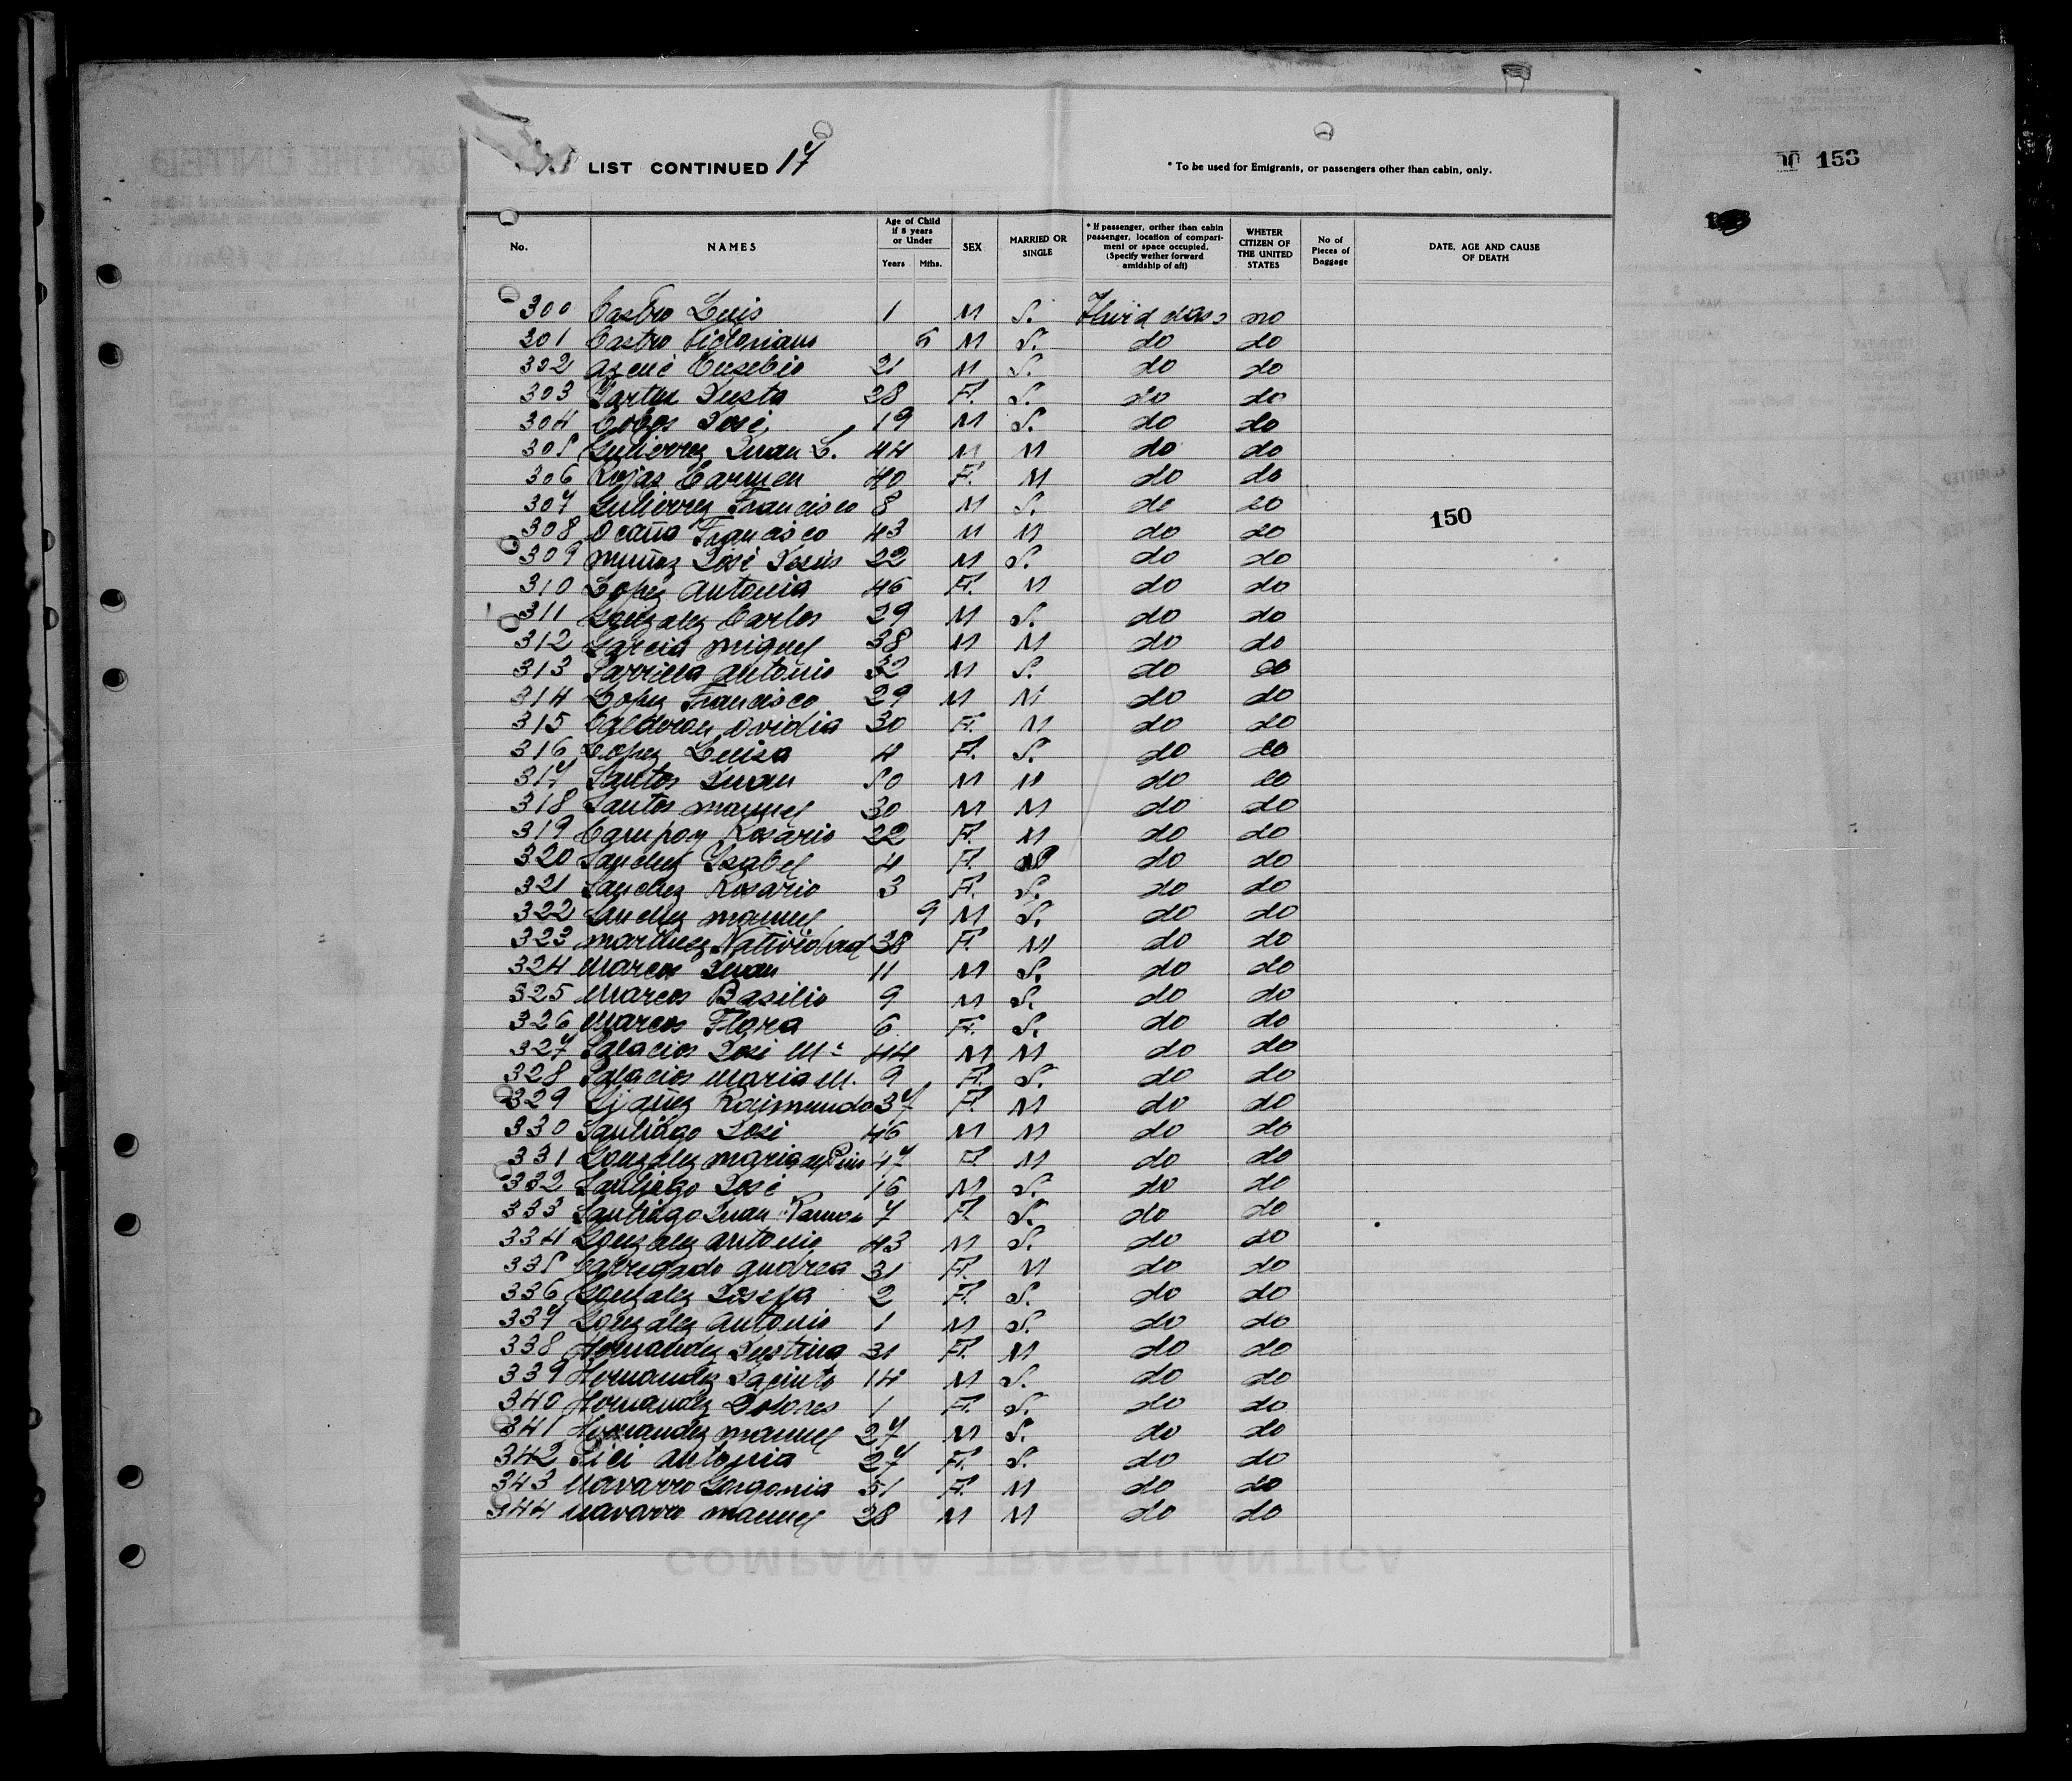 LIST CONTINUED 17
* To be used for Emigrants, or passengers other than cabin, only.
153
No. NAMES Age of Child if 8 years or Under Years Mths. SEX MARRIED OR SINGLE * If passenger, orther than cabin passenger, location of compartment or space occupied. (Specify wether forward amidship of aft) WHETER CITIZEN OF THE UNITED STATES No of Pieces of Baggage DATE, AGE AND CAUSE OF DEATH
300 Castro Luis 1 M S. Third class no
301 Castro Victoriano 6 M S. do do
302 Eusebio 21 M S. do do
303 Justa 28 F. S. do do
304 Cobos José 19 M S. do do
305 Gutierrez Juan C. 44 M M do do
306 Rojas Carmen 40 F. M do do
307 Gutierrez Francisco 8 M S. do do
308 Ocaña Francisco 43 M M do do
150
309 Muñoz José Jesús 22 M S. do do
310 Lopez Antonia 46 F. M do do
311 Gonzalez Carlos 29 M S. do do
312 Garcia Miguel 38 M M do do
313 Parrilla Antonio 32 M S. do do
314 Lopez Francisco 29 M M do do
315 Calderon Ovidia 30 F. M do do
316 Lopez Luisa 4 F. S. do do
317 Santos Juan 50 M M do do
318 Santos Manuel 30 M M do do
319 Campoy Rosario 22 F. M do do
320 Sanchez Isabel 4 F. do do
321 Sanchez Rosario 3 F. S. do do
322 Sanchez Manuel 9 M S. do do
323 Martinez Natividad 38 F. M do do
324 Marcos Juan 11 M S. do do
325 Marcos Basilio 9 M S. do do
326 Marcos Flora 6 F. S. do do
327 Palacios José Mª 44 M M do do
328 Palacios Maria M. 9 F. S. do do
329 Raimunda 37 F. M do do
330 Santiago José 46 M M do do
331 Gonzalez Maria 47 F. M do do
332 Santiago José 16 M S. do do
333 Santiago Juan Ramon 7 F. S. do do
334 Gonzalez Antonio 43 M S. do do
335 Carregado Andrea 31 F. M do do
336 Gonzalez Josefa 2 F. S. do do
337 Gonzalez Antonio 1 M S. do do
338 Hernandez Justina 31 F. M do do
339 Hernandez Jacinto 14 M S. do do
340 Hernandez Dolores 1 F. S. do do
341 Hernandez Manuel 27 M S. do do
342 Antonia 27 F. S. do do
343 Navarro Gorgonia 51 F. M do do
344 Navarro Manuel 28 M M do do
COMPAÑÍA TRASATLÁNTICA